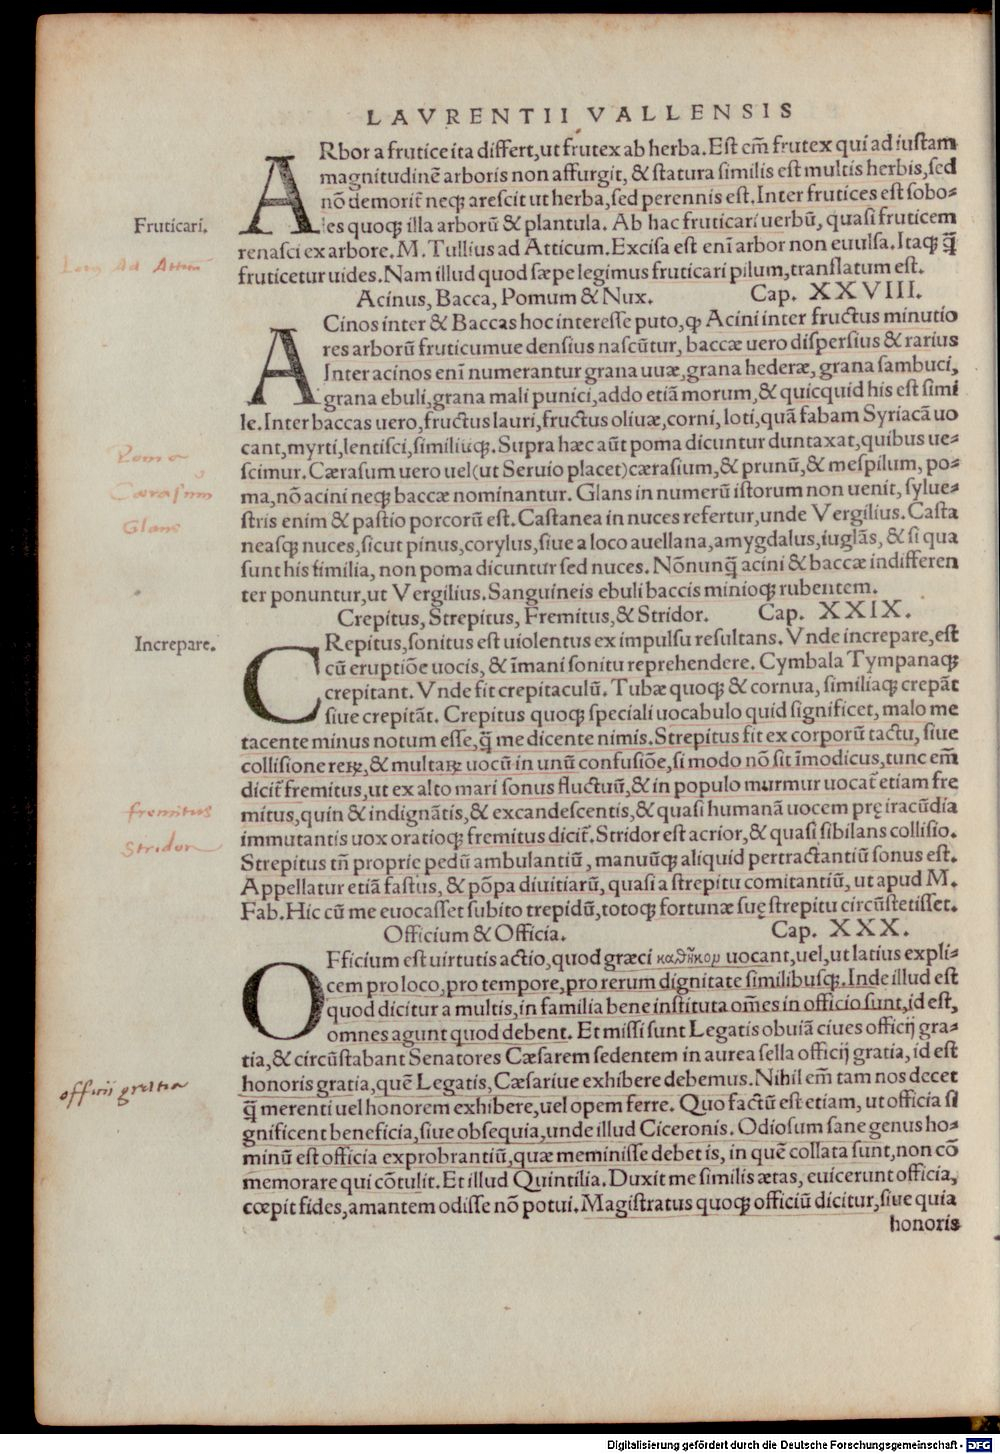 LAVRENTII VALLENSIS
ARbor a frutice ita differt,ut frutex ab herba.Est em̃ frutex qui ad iustam
magnitudinẽ arboris non assurgit, & statura similis est multis herbis,sed
nõ demorit̃ neqꝫ arescit ut herba,sed perennis est.Inter frutices est sobo-
les quoqꝫ illa arborũ & plantula. Ab hac fruticari uerbũ, quasi fruticem
Fruticari.
renasci ex arbore.M. Tullius ad Atticum.Excisa est enĩ arbor non euulsa.Itaqꝫ q̃
ad Atticũ
fruticetur uides.Nam illud quod sæpe legimus fruticari pilum,translatum est.
Acinus, Bacca, Pomum & Nux. Cap. XXVIII.
ACinos inter & Baccas hoc interesse puto,ꝙ Acini inter fructus minutio
res arborũ fruticumue densius nascũtur, baccæ uero dispersius & rarius
Inter acinos enĩ numerantur grana uuæ,grana hederæ, grana sambuci,
grana ebuli,grana mali punici,addo etiã morum,& quicquid his est simi
le.Inter baccas uero,fructus lauri,fructus oliuæ,corni, loti,quã fabam Syriacã uo
cant,myrti,lentisci,similiũqꝫ.Supra hæc aũt poma dicuntur duntaxat,quibus ue-
Poma
scimur.Cærasum uero uel(ut Seruio placet)cærasium,& prunũ,& mespilum, po-
Cærasum
ma,nõ acini neqꝫ baccæ nominantur. Glans in numerũ istorum non uenit, sylue-
Glans
stris enim & pastio porcorũ est.Castanea in nuces refertur,unde Vergilius.Casta
neasqꝫ nuces,sicut pinus,corylus,siue a loco auellana,amygdalus,iuglãs, & si qua
sunt his similia, non poma dicuntur sed nuces. Nõnunq̃ acini & baccæ indifferen
ter ponuntur,ut Vergilius.Sanguineis ebuli baccis minioqꝫ rubentem.
Crepitus, Strepitus, Fremitus,& Stridor. Cap. XXIX.
CRepitus,sonitus est uiolentus ex impulsu resultans. Vnde increpare,est
Increpare.
cũ eruptiõe uocis, & ĩmani sonitu reprehendere. Cymbala Tympanaqꝫ
crepitant. Vnde fit crepitaculũ. Tubæ quoqꝫ & cornua, similiaqꝫ crepãt
siue crepitãt. Crepitus quoqꝫ speciali uocabulo quid significet, malo me
tacente minus notum esse,q̃ me dicente nimis.Strepitus fit ex corporũ tactu, siue
collisione reꝝ,& multaꝝ uocũ in unũ confusiõe,si modo nõ sit ĩmodicus,tunc em̃
dicit̃ fremitus,ut ex alto mari sonus fluctuũ,& in populo murmur uocat̃ etiam fre
mitus,quin & indignãtis,& excandescentis,& quasi humanã uocem prę iracũdia
fremitus
immutantis uox oratioqꝫ fremitus dicit̃. Stridor est acrior,& quasi sibilans collisio.
Stridor
Strepitus tñ proprie pedũ ambulantiũ, manuũqꝫ aliquid pertractantiũ sonus est.
Appellatur etiã fastus, & põpa diuitiarũ, quasi a strepitu comitantiũ, ut apud M.
Fab.Hic cũ me euocasset subito trepidũ,totoqꝫ fortunæ suę strepitu circũstetisset.
Officium & Officia. Cap. XXX.
OFficium est uirtutis actio,quod græci καθῆκον uocant,uel,ut latius expli-
cem pro loco,pro tempore,pro rerum dignitate similibusqꝫ.Inde illud est
quod dicitur a multis,in familia bene instituta om̃es in officio sunt,id est,
omnes agunt quod debent. Et missi sunt Legatis obuiã ciues officij gra-
tia,& circũstabant Senatores Cæsarem sedentem in aurea sella officij gratia, id est
honoris gratia,quẽ Legatis,Cæsariue exhibere debemus.Nihil em̃ tam nos decet
officii gratia
q̃ merenti uel honorem exhibere,uel opem ferre. Quo factũ est etiam, ut officia si
gnificent beneficia,siue obsequia,unde illud Ciceronis. Odiosum sane genus ho-
minũ est officia exprobrantiũ,quæ meminisse debet is, in quẽ collata sunt,non cõ
memorare qui cõtulit.Et illud Quintilia. Duxit me similis ætas, euicerunt officia,
cœpit fides,amantem odisse nõ potui.Magistratus quoqꝫ officiũ dicitur,siue quia
honoris
Digitalisierung gefördert durch die Deutsche Forschungsgemeinschaft - DFG